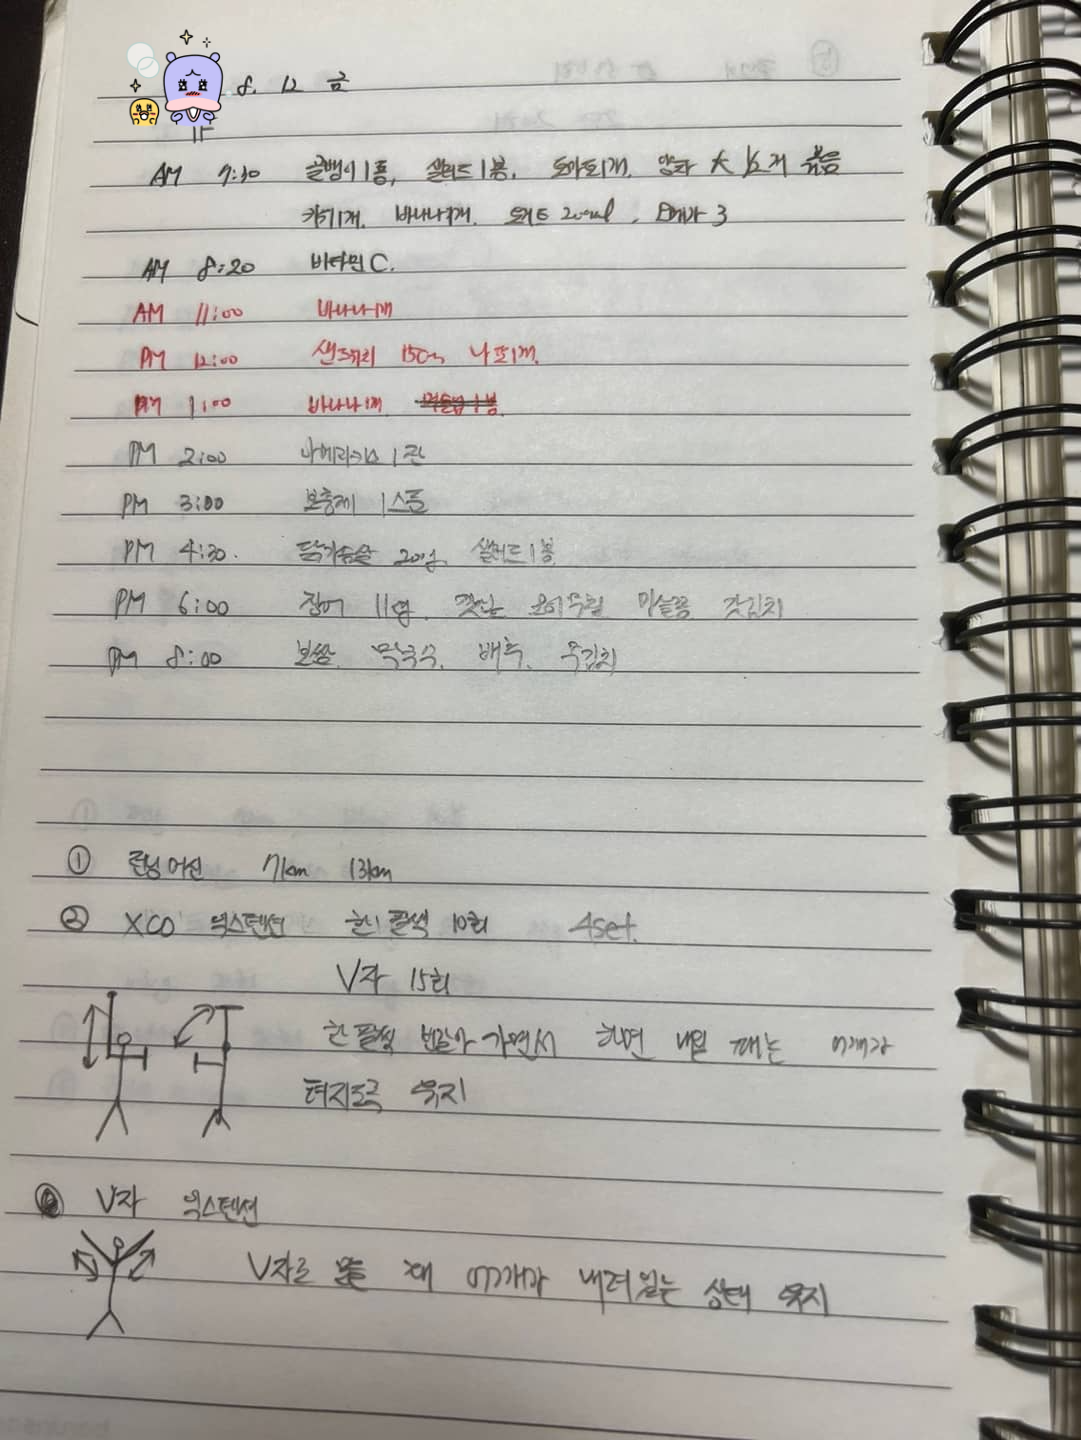 8. 12 금
AM 7:30 골뱅이1통, 샐러드1봉, 토마토1개, 양파 大 1/2개 볶음
키위1개, 바나나1개, 200ml, 오메가 3
AM 8:20 비타민C.
AM 11:00 바나나1개
PM 12:00 샌드위치 15cm
PM 1:00 바나나1개
PM 2:00 아메리카노 1잔
PM 3:00 보충제 1스푼
PM 4:30. 닭가슴살 200g, 샐러드1봉
PM 6:00 장어 갓김치
PM 8:00 보쌈, 막국수, 배추, 무김치
① 런닝머신 7km 13km
② XCO 익스텐션 한 팔씩 10회 4set.
V자 15회
한 팔씩 번갈아 가면서 하면 내릴 때는 어깨가
유지
V자 익스텐션
V자로 때 어깨가 내려있는 상태 유지